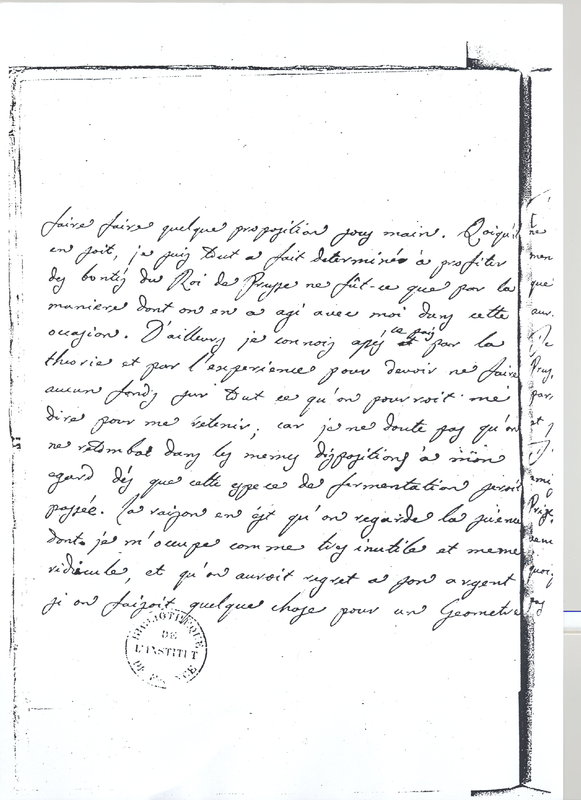 faire faire quelque proposition sous main. Quoiqu'il
en soit, je suis tout a fait determiné à profiter
des bontés du Roi de Prusse ne fût-ce que par la
maniere dont on en a agi avec moi dans cette
occasion. D'ailleurs je connois assés ce païs et par la
theorie et par l'experience pour devoir ne faire
aucun fonds sur tout ce qu'on pourroit me
dire pour me retenir; car je ne doute pas qu'on
ne retombat dans les memes dispositions à mon
egard dés que cette espece de fermentation seroit
passée. La raison en est qu'on regarde la science
dont je m'occupe comme tres inutile et meme
ridicule, et qu'on auroit regret a son argent
si on faisoit quelque chose pour un Geometre
BIBLIOTHEQUE
DE
L'INSTITUT
ne
men
que
aur
par
et
quoi
pas